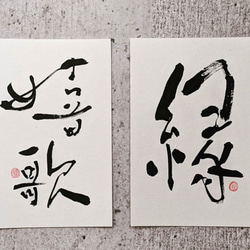 嬉歌
縁